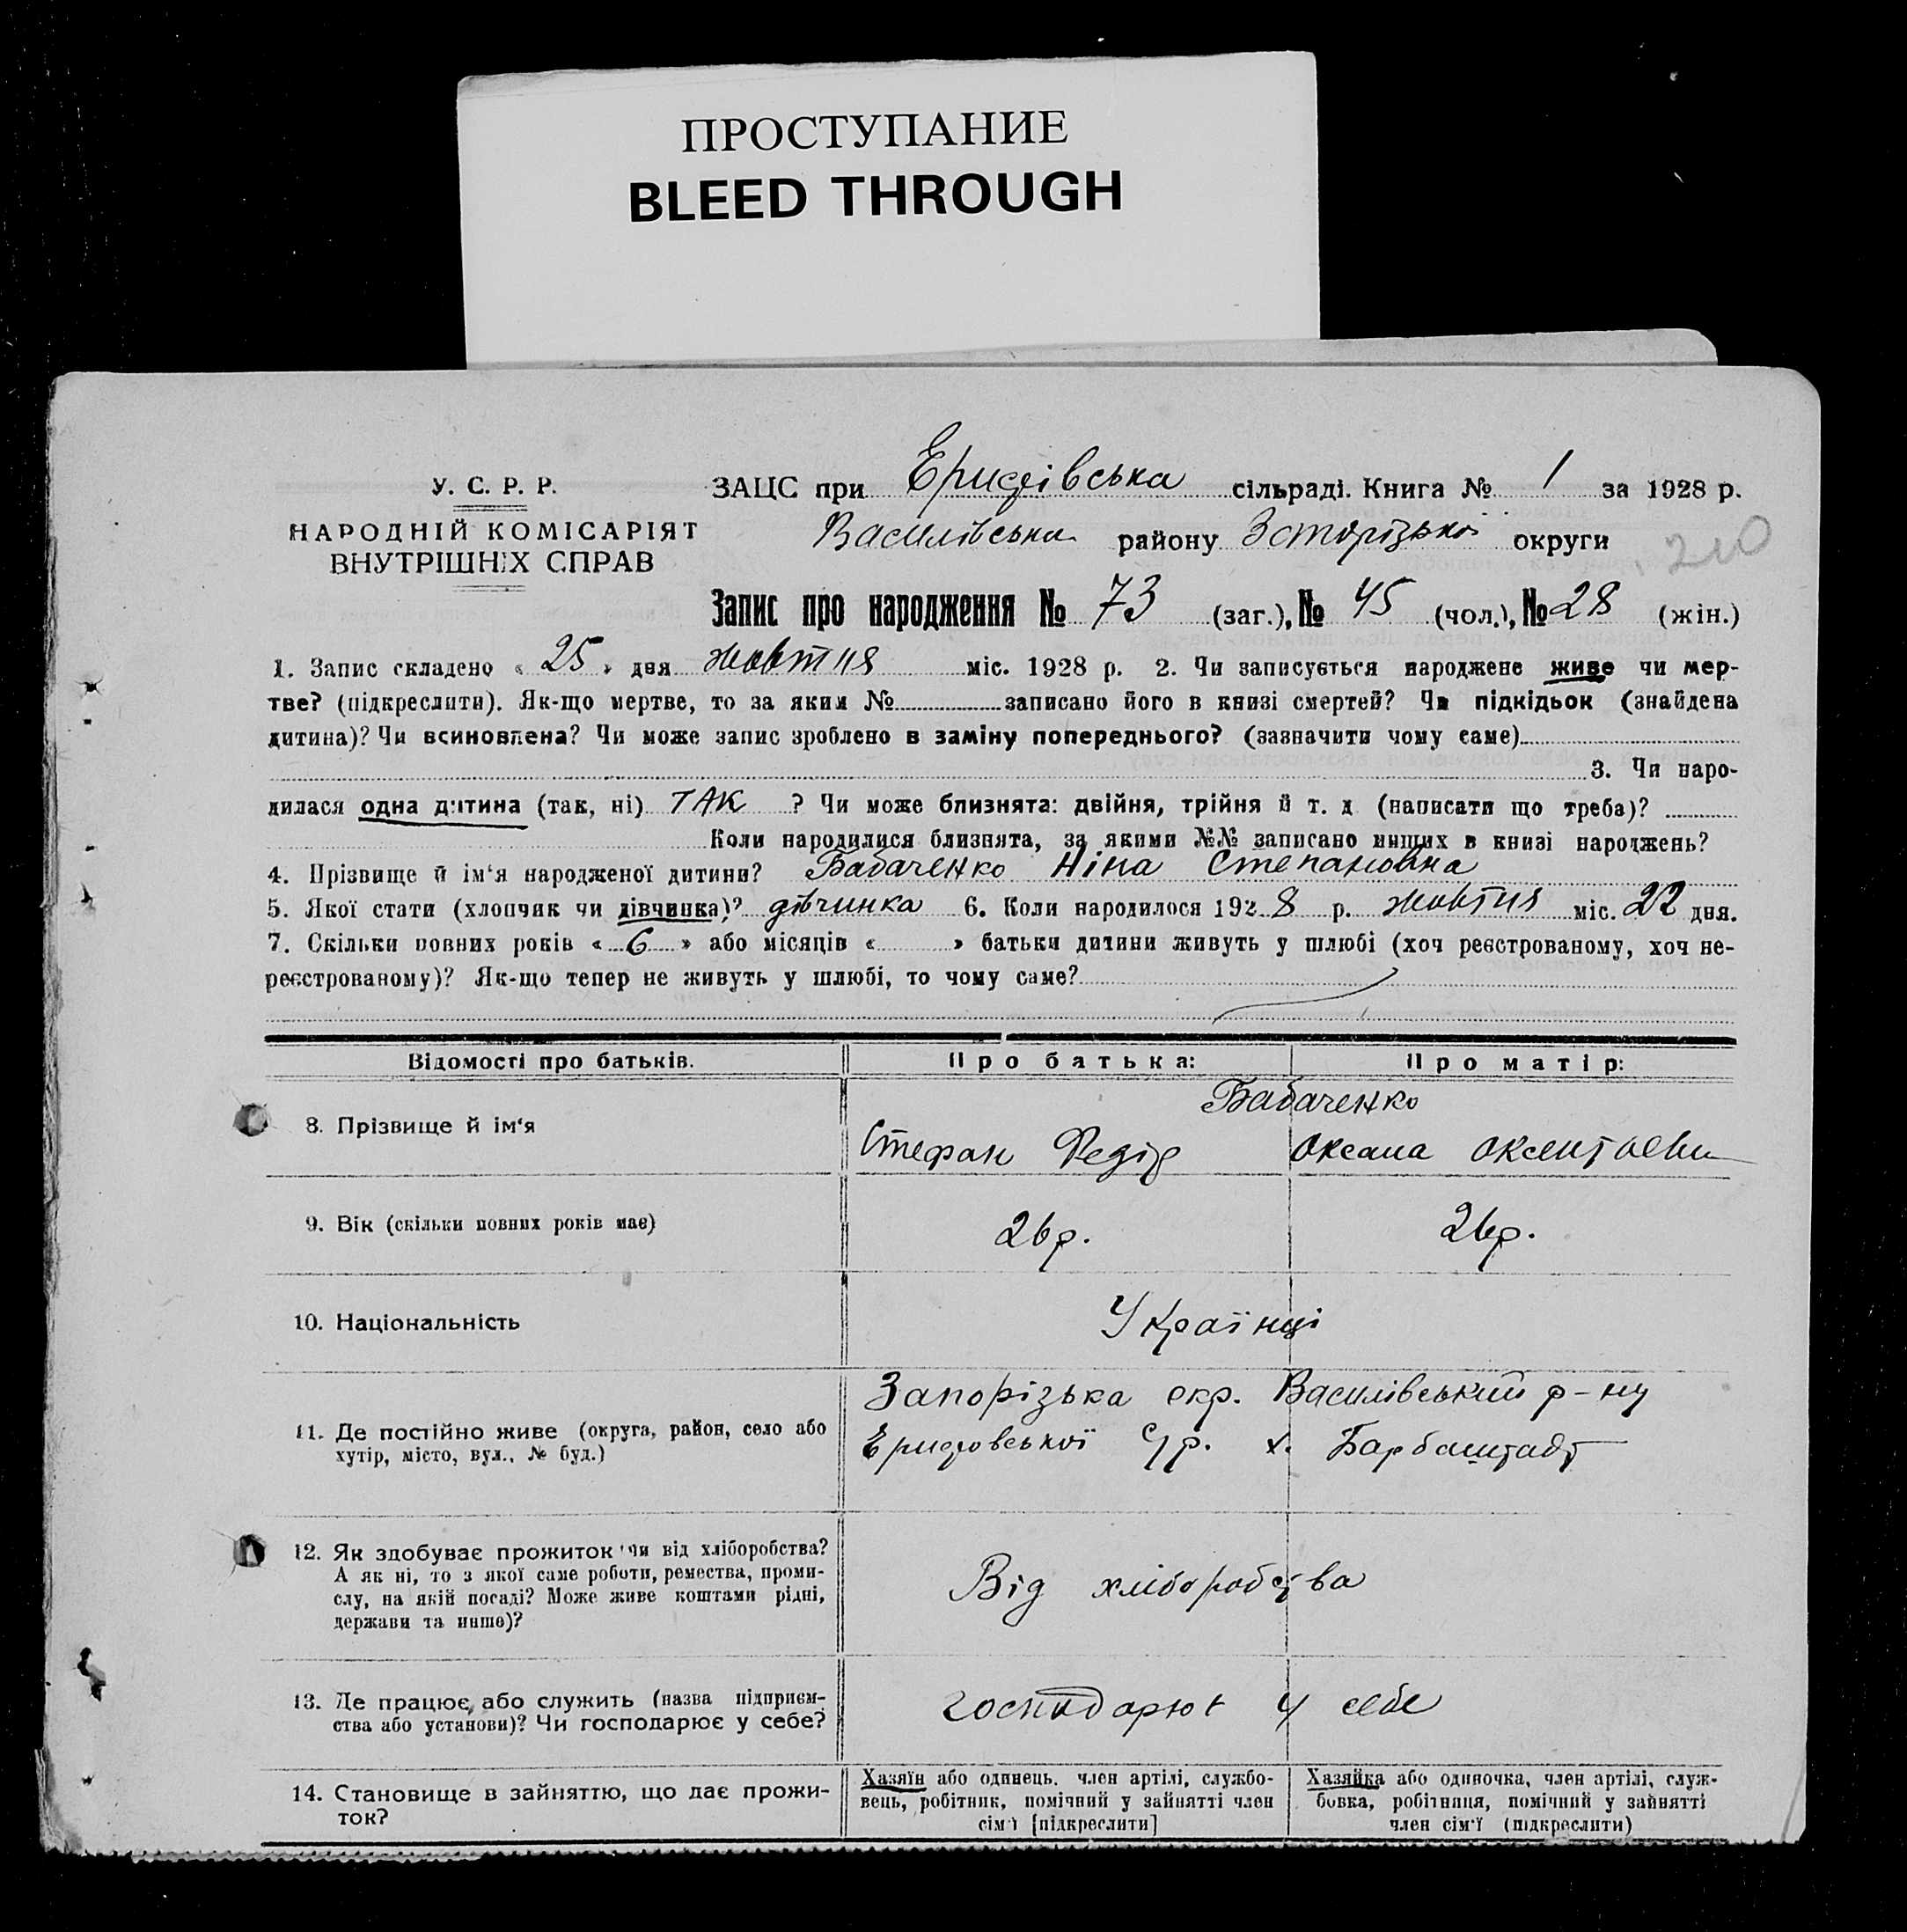 ПРОСТУПАНИЕ
BLEED THROUGH
У. С. Р. Р.
НАРОДНІЙ КОМІСАРІЯТ
ВНУТРІШНІХ СПРАВ
ЗАЦС при сільраді. Книга № 1 за 1928 р.
Василівська району Запорізької округи
210
Запис про народження № 73 (заг.), № 45 (чол.), № 28 (жін.)
1. Запис складено « 25 » дня жовтня міс. 1928 р. 2. Чи записується народжене живе чи мер-
тве? (підкреслити). Як-що мертве, то за яким № записано його в книзі смертей? Чи підкідьок (знайдена
дитина)? Чи всиновлена? Чи може запис зроблено в заміну попереднього? (зазначити чому саме)
3. Чи наро-
дилася одна дитина (так, ні) ТАК ? Чи може близнята: двійня, трійня й т. д (написати що треба)?
Коли народилися близнята, за якими №№ записано инших в книзі народжень?
4. Прізвище й ім'я народженої дитини? Бабаченко Ніна Степановна
5. Якої стати (хлопчик чи дівчинка)? дівчинка 6. Коли народилося 192 8 р. жовтня міс. 22 дня.
7. Скільки повних років « 6 » або місяців « » батьки дитини живуть у шлюбі (хоч реєстрованому, хоч не-
реєстрованому)? Як-що тепер не живуть у шлюбі, то чому саме?
Відомості про батьків. Про батька: Про матір:
Бабаченко
8. Прізвище й ім'я Стефан Федір Оксана
9. Вік (скільки повних років має) 26 р. 26 р.
10. Національність Українці
11. Де постійно живе (округа, район, село або
хутір, місто, вул., № буд.)
Запорізька окр. Василівський р-ну
с/р. х.
12. Як здобуває прожиток чи від хліборобства?
А як ні, то з якої саме роботи, ремества, проми-
слу, на якій посаді? Може живе коштами рідні,
держави та инше)?
Від хліборобства
13. Де працює, або служить (назва підприєм-
ства або установи)? Чи господарює у себе?
господарют у себе
14. Становище в зайняттю, що дає прожи-
ток?
Хазяїн або одинець, член артілі, службо-
вець, робітник, помічний у зайнятті член
сім'ї [підкреслити]
Хазяйка або одиночка, член артілі, служ-
бовка, робітниця, помічний у зайнятті
член сім'ї (підкреслити)